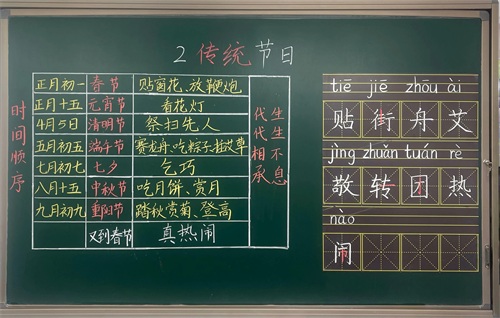 2 传统节日
时间顺序
正月初一 春节 贴窗花、放鞭炮
正月十五 元宵节 看花灯
4月5日 清明节 祭扫先人
五月初五 端午节 赛龙舟、吃粽子、挂艾草
七月初七 七夕 乞巧
八月十五 中秋节 吃月饼、赏月
九月初九 重阳节 踏秋赏菊、登高
又到春节 真热闹
代代相承
生生不息
tiē jiē zhōu ài
贴 街 舟 艾
jìng zhuǎn tuán rè
敬 转 团 热
nào
闹